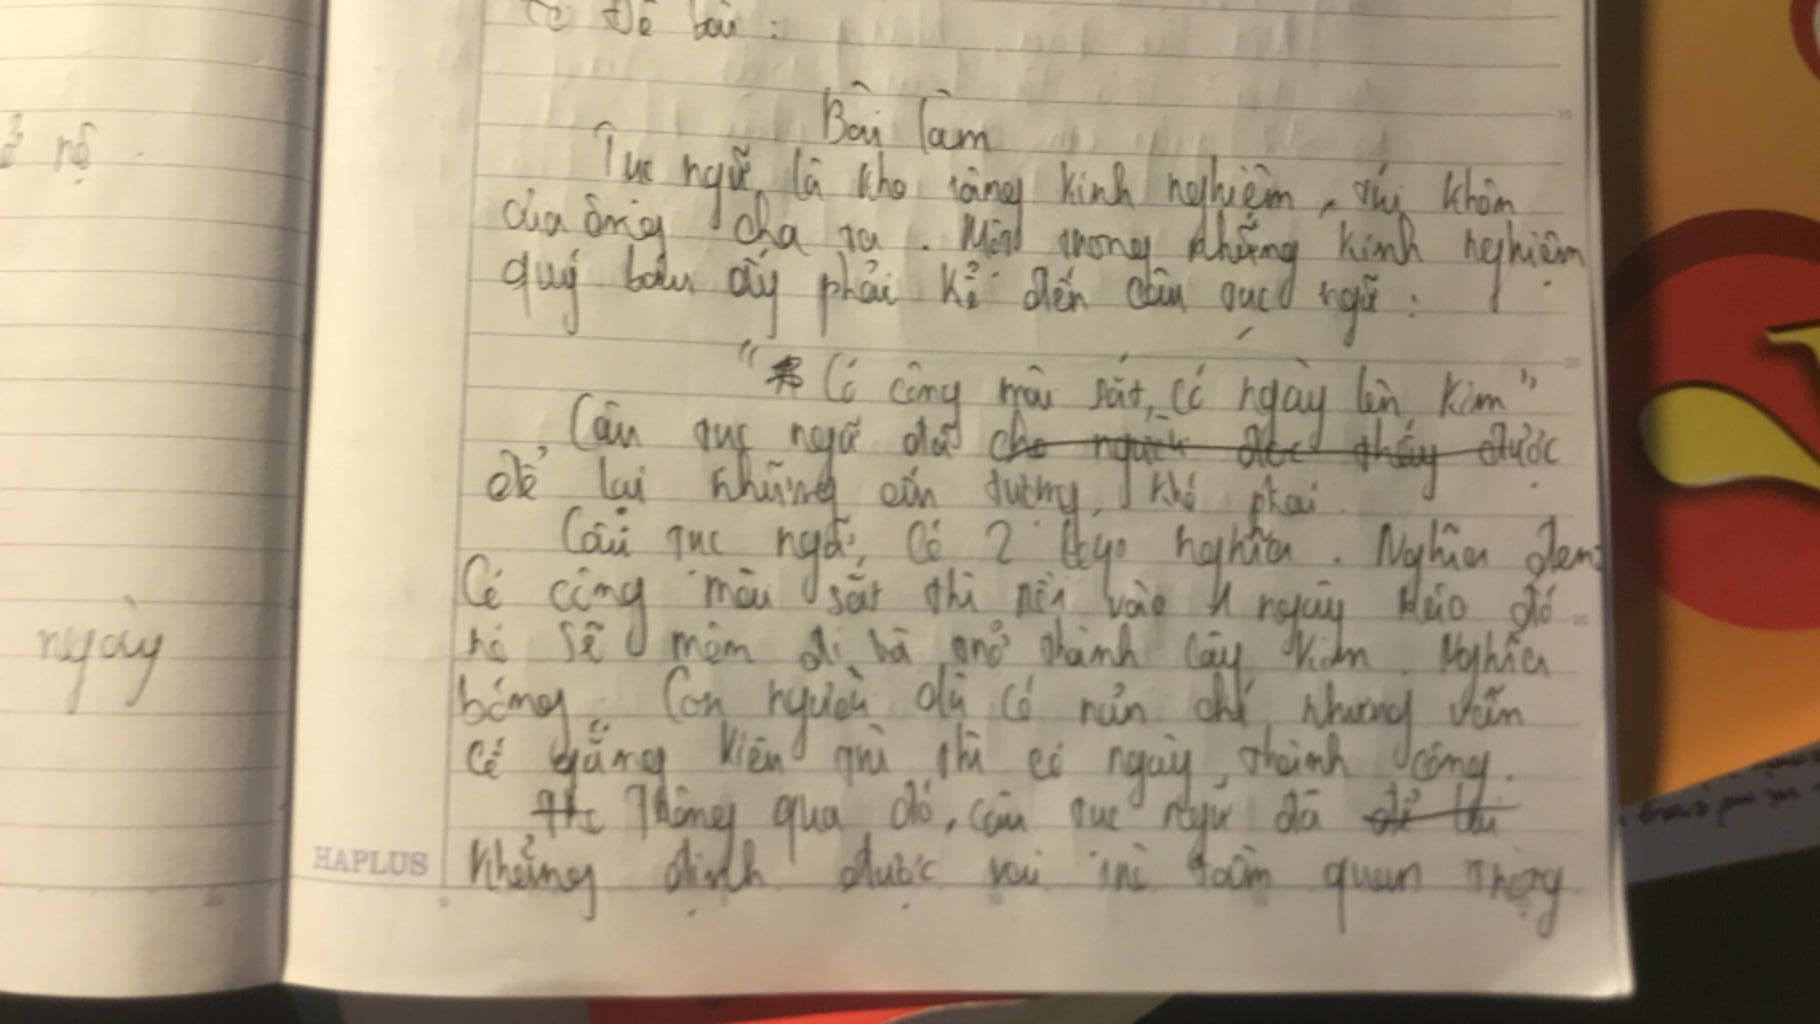 Đề bài :
Bài làm
Tục ngữ là kho tàng kinh nghiệm, trí khôn
của ông cha ta. Một trong những kinh nghiệm
quý báu ấy phải kể đến câu tục ngữ :
" Có công mài sắt, có ngày lên kim"
Câu tục ngữ đã cho người đọc thấy được
để lại những ấn tượng khó phai.
Câu tục ngữ có 2 nghĩa. Nghĩa đen:
Có công mài sắt thì một ngày nào đó
nó sẽ mòn đi và trở thành cây kim. Nghĩa
bóng: Con người dù có nản chí nhưng vẫn
cố gắng kiên trì thì có ngày thành công.
Thông qua đó, câu tục ngữ đã
khẳng định được vai trò tầm quan trọng
ngày
HAPLUS